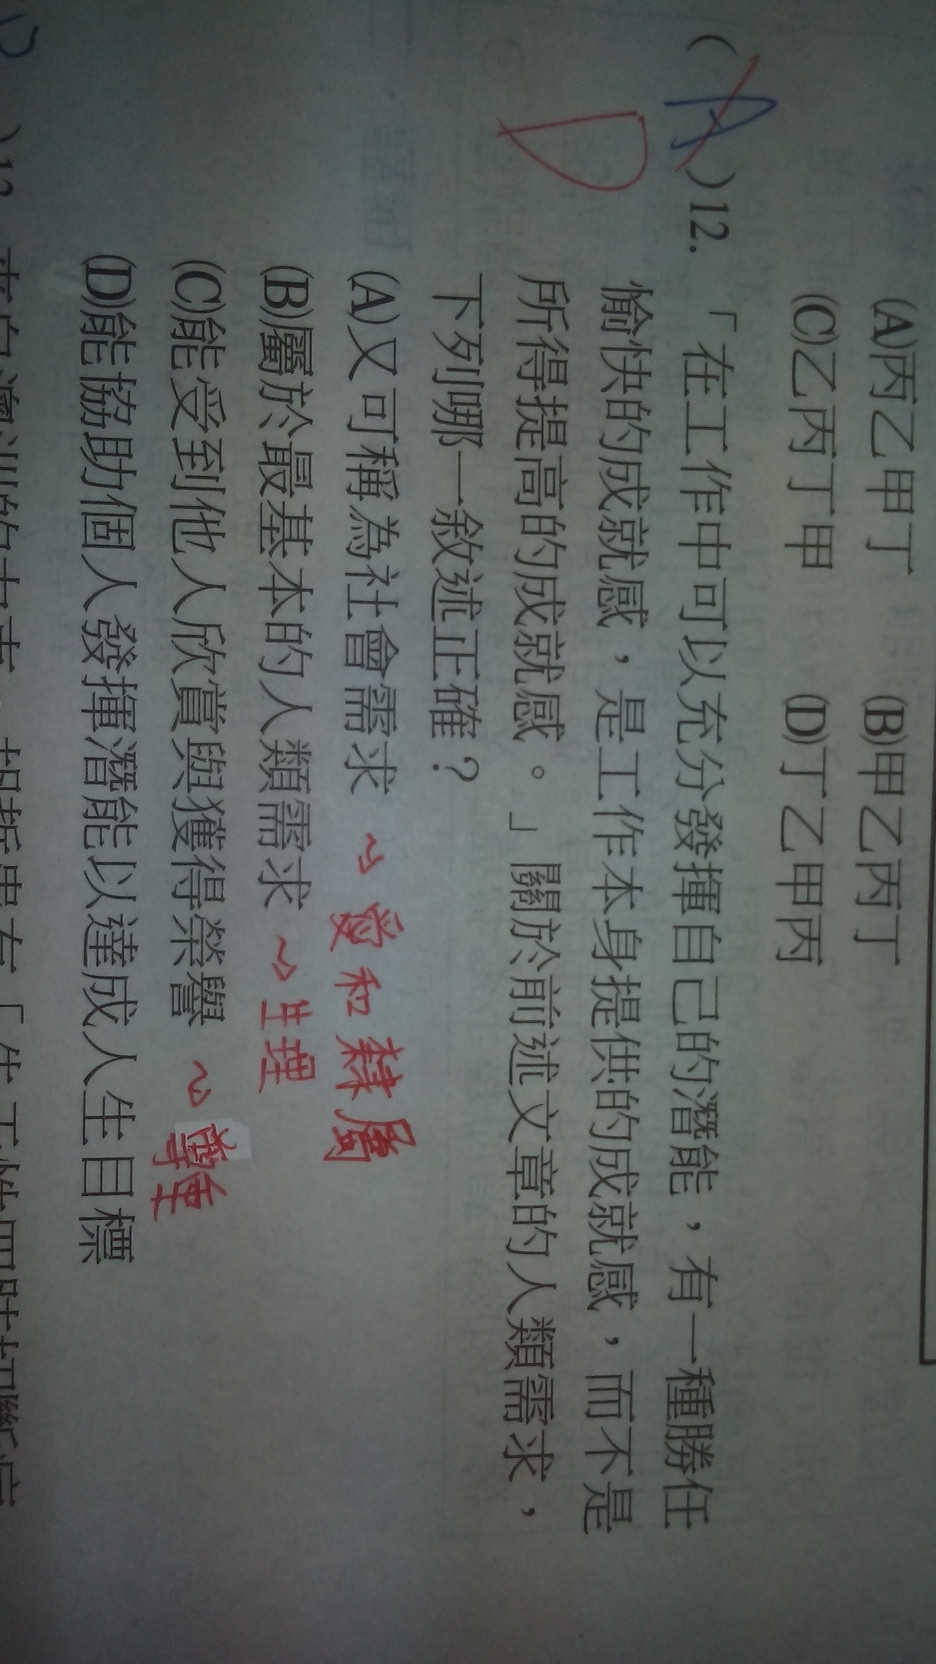 (A)丙乙甲丁 (B)甲乙丙丁
(C)乙丙丁甲 (D)丁乙甲丙
(A)12.「在工作中可以充分發揮自己的潛能，有一種勝任
愉快的成就感，是工作本身提供的成就感，而不是
所得提高的成就感。」關於前述文章的人類需求，
下列哪一敘述正確？
D
(A)又可稱為社會需求 ~愛和隸屬
(B)屬於最基本的人類需求 ~生理
(C)能受到他人欣賞與獲得榮譽 ~尊重
(D)能協助個人發揮潛能以達成人生目標